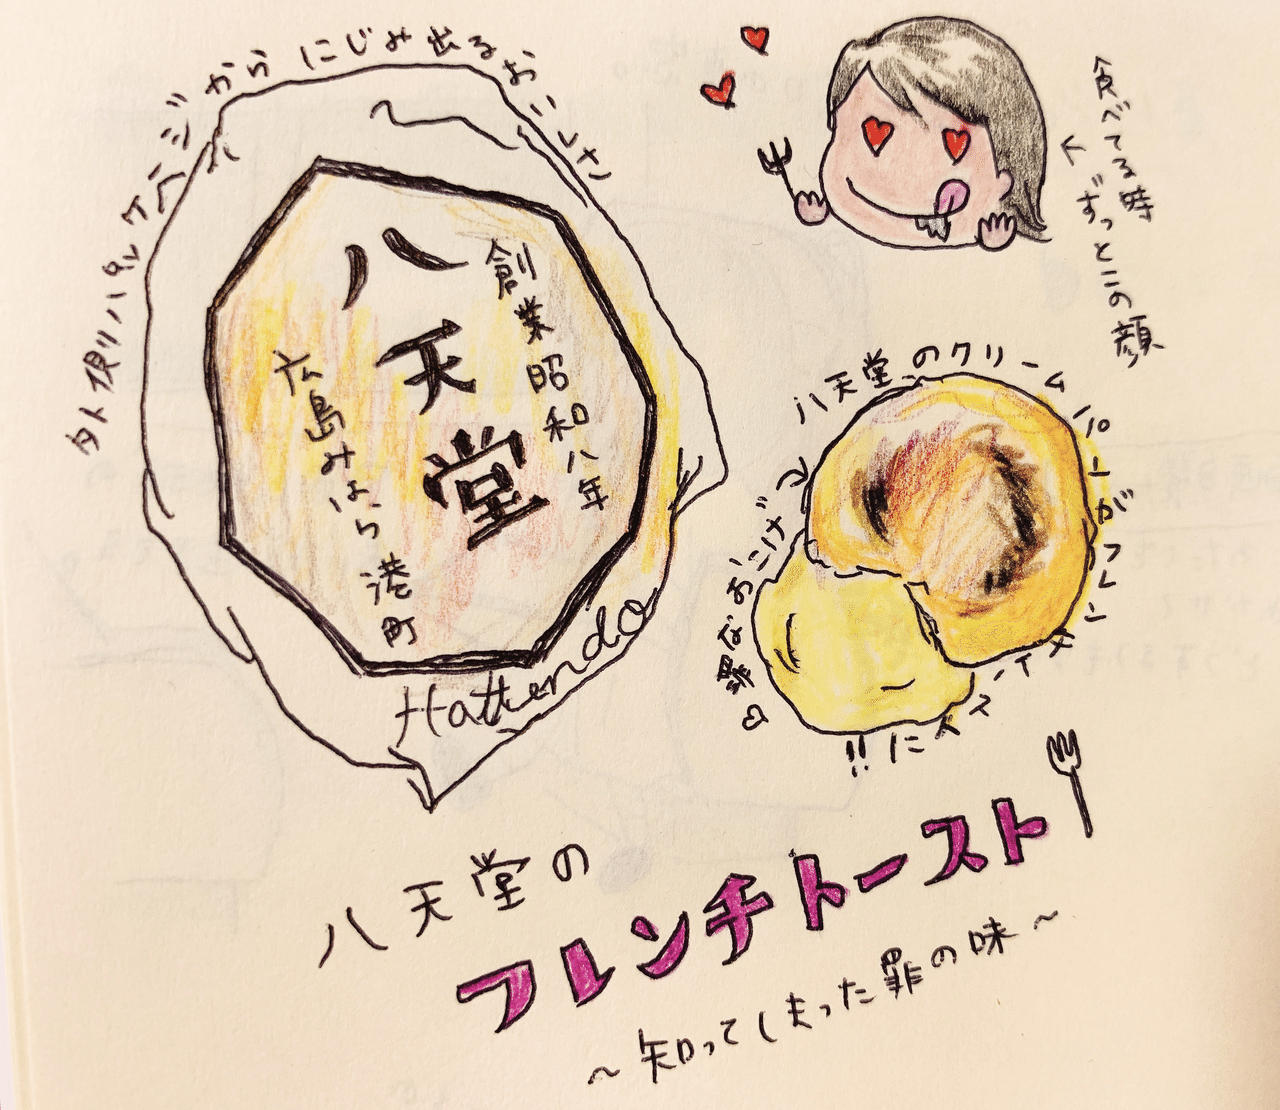 外側パッケージからにじみ出るおいしさ
八天堂
創業昭和八年
広島みはら港町
Hattendo
食べてる時
ずっとこの顔
八天堂のクリームパンがフレンチトーストに!!
罪なおこげ
八天堂の
フレンチトースト
~知ってしまった罪の味~